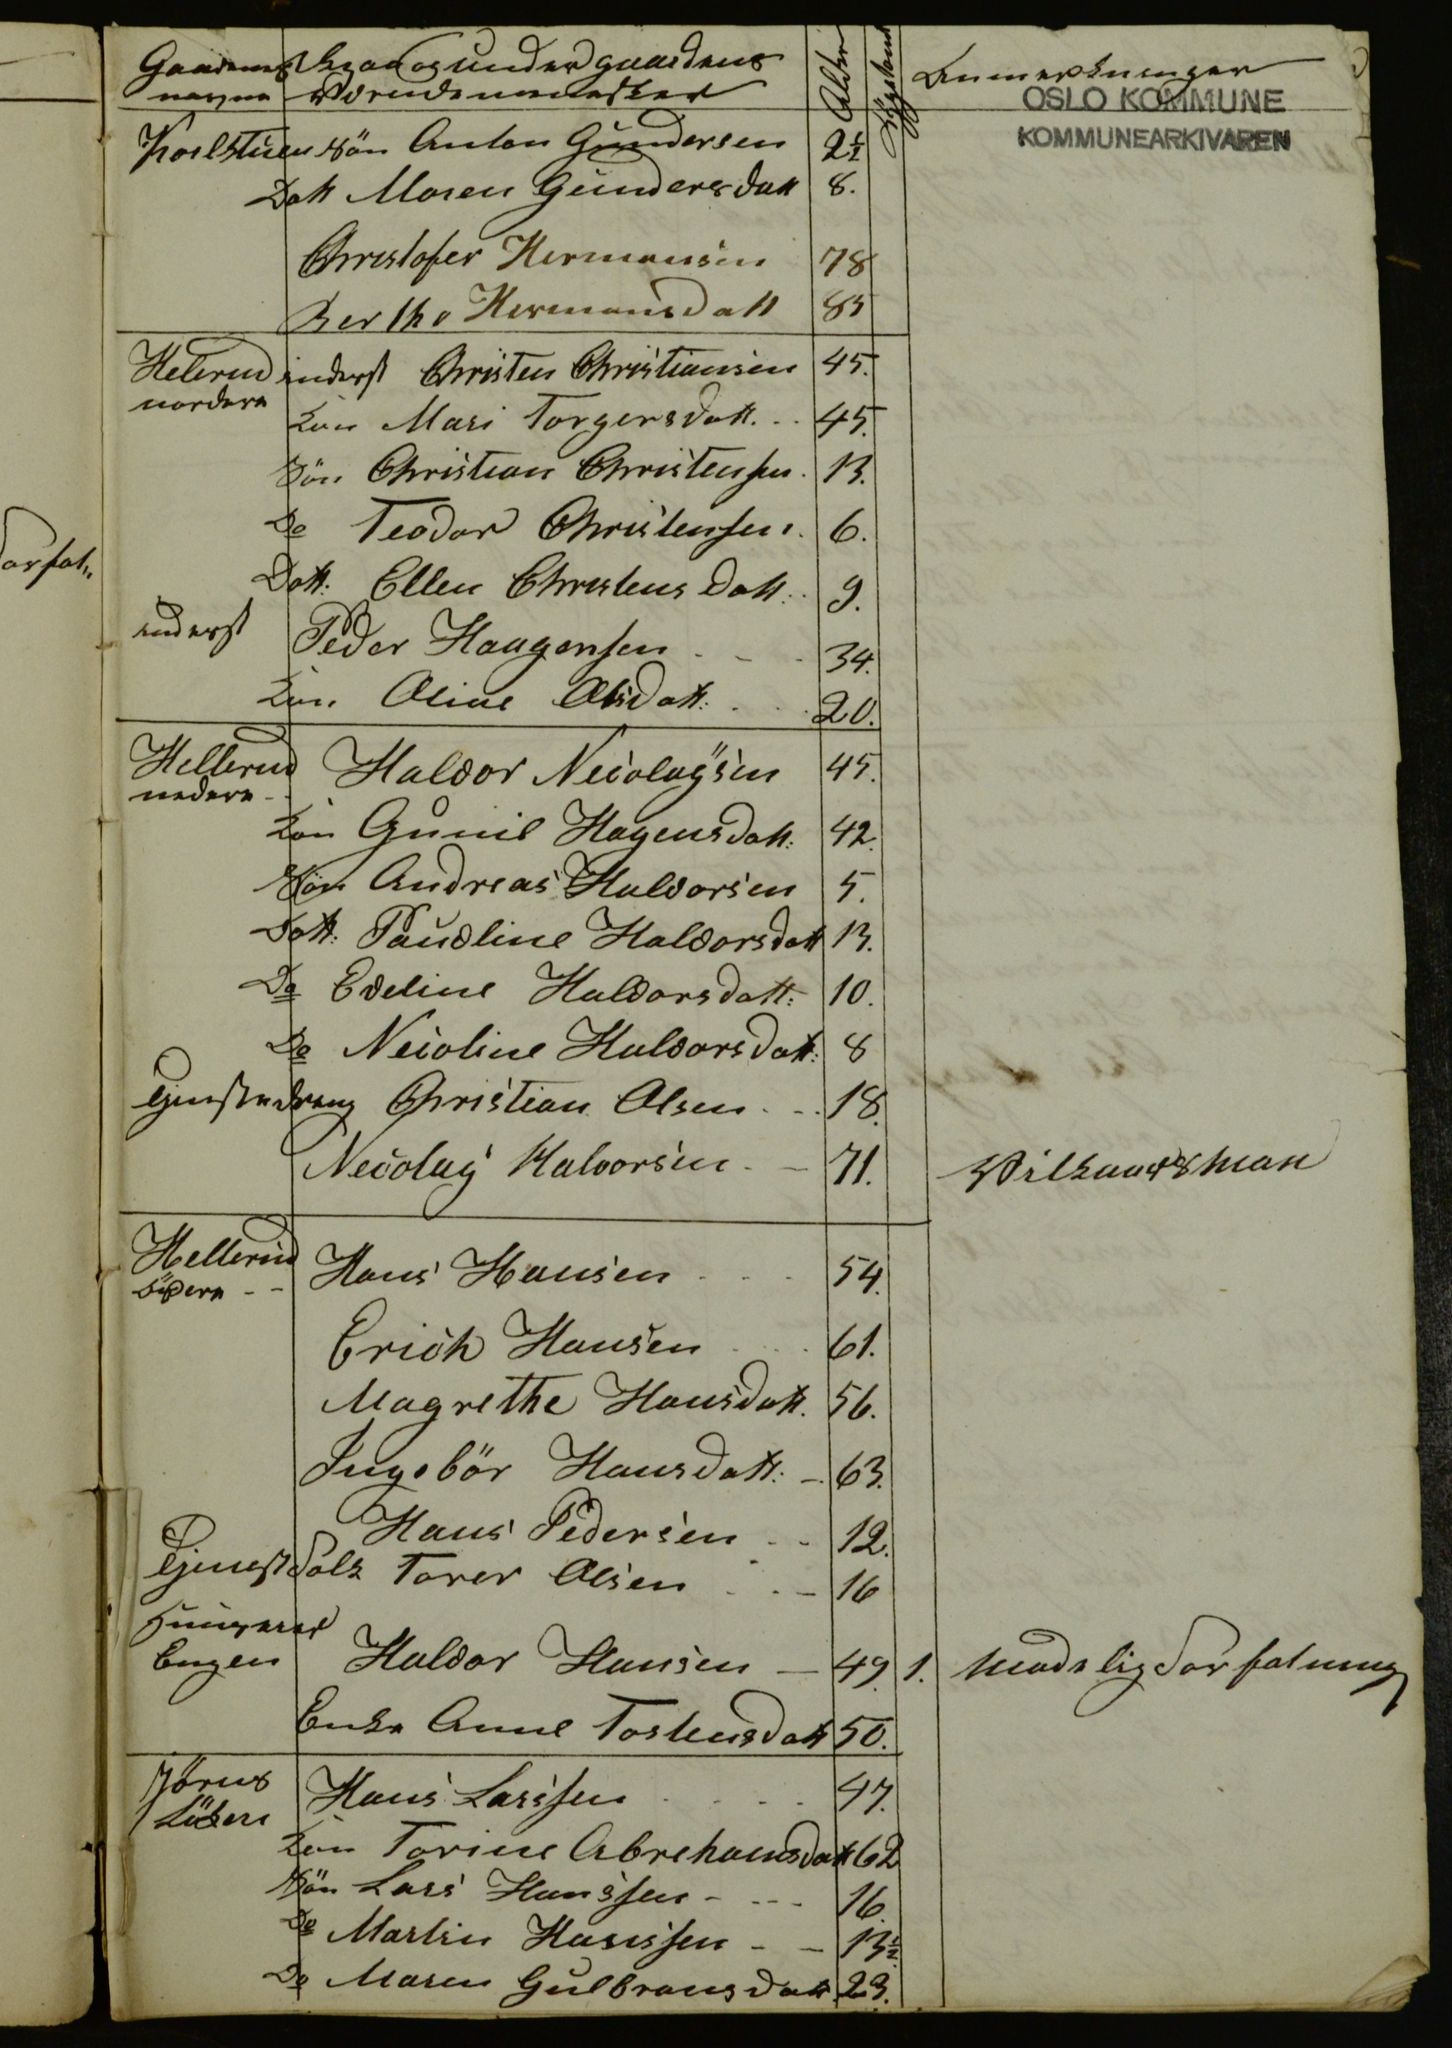 Gaardenes Paa og under gaardens Alder Anmerkninger
navne værende mennesker
OSLO KOMMUNE
KOMMUNEARKIVAREN
Koelstuen Sön Anton Gundersen 2½
Datt Maren Gundersdatt 8.
Christofer Hermansen 78
Berthe Hermansdatt 85
Helerud inderst Christen Christiansen 45.
nordere
Kon Mari Torgersdatt. 45.
Sön Christian Christensen. 13.
Do Teodor Christensen. 6.
Datt. Ellen Christensdatt. 9.
inderst Peder Haagensen 34.
Kon Oline Olsdatt. 20.
Hellerud Haldor Nicolaysen 45.
nedere
Kon Gunil Hagensdatt: 42.
Sön Andreas Haldorsen 5.
Datt: Paudline Haldorsdatt 13.
Do Edeline Haldorsdatt: 10.
Do Nicoline Haldorsdatt: 8
Tjenestedreng Christian Olsen 18.
Nicolay Halvorsen 71. Vilkaarsman
Hellerud Hans Hansen 54.
södere
Erich Hansen 61.
Magrethe Hansdatt. 56.
Ingebör Hansdatt. 63.
Hans Pedersen 12.
Tjenestfolk Torer Olsen 16
Engen Haldor Hansen 49. 1. Maadelig Forfatning
Enke Anne Tostensdatt 50.
Hans Larssen 47.
Kon Torine Abrehamsdatt 62
Sön Lars Hanssen 16.
Do Martin Hanssen 13½
Do Maren Gulbransdatt 23.